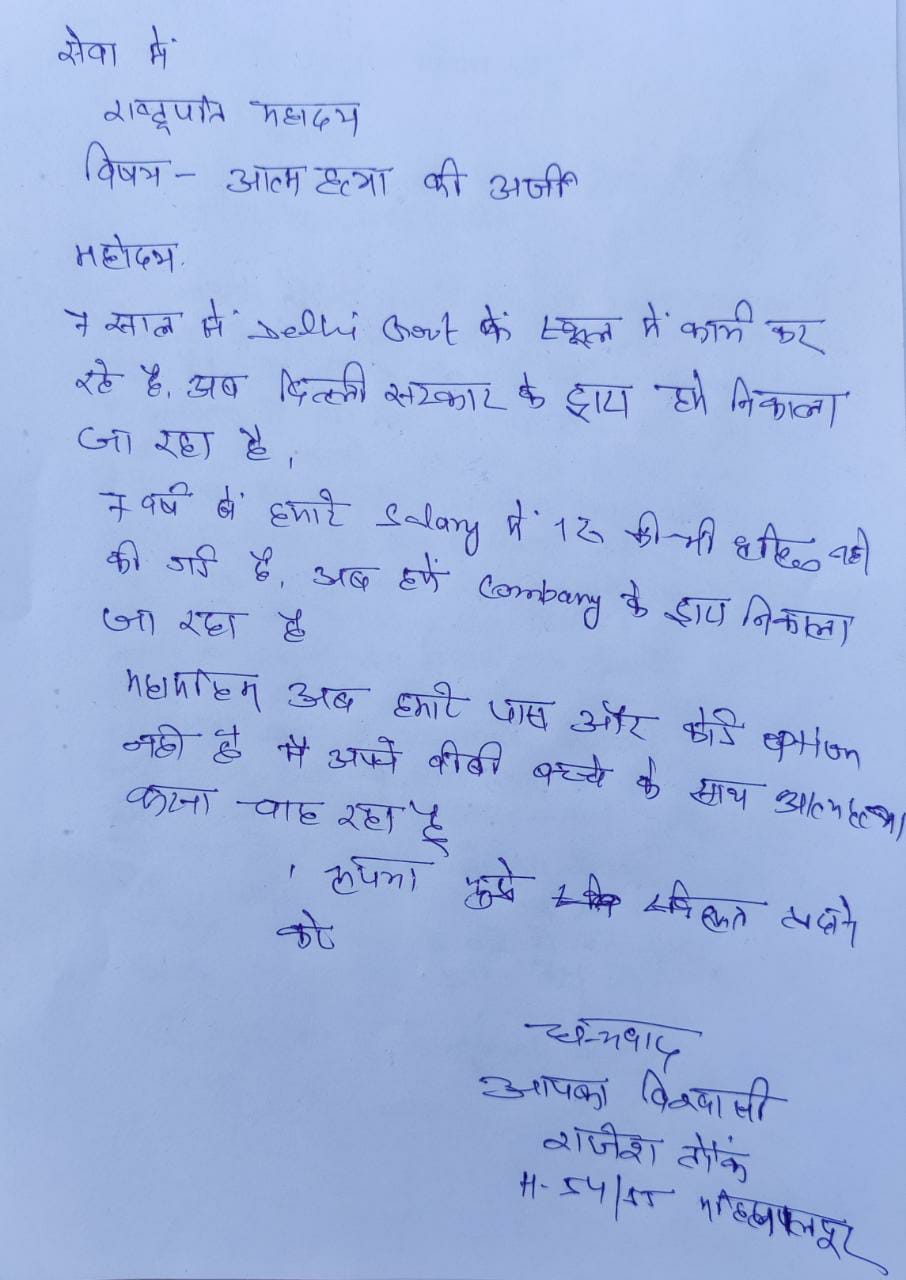 सेवा में
राष्ट्रपति महोदय
विषय - आत्म हत्या की अर्जी
महोदय.
7 साल से Delhi Govt के स्कूल में काम कर
रहे है, अब दिल्ली सरकार के द्वारा हमे निकाला
जा रहा है,
7 वर्ष में हमारे Salary में की भी नही
की गई है, अब हमें Company के द्वारा निकाला
जा रहा है
महामहिम अब हमारे पास और कोई option
नही है मै अपने बीबी बच्चे के साथ आत्महत्या
करना चाह रहा हूँ
कृपया मुझे
करे
धन्यवाद
आपका विश्वासी
राजेश
H-54/55 महिपालपुर